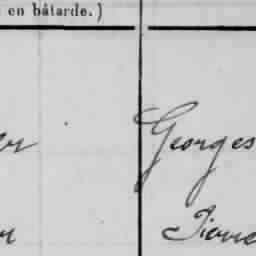 en bâtarde.)
er Georges
Pierre